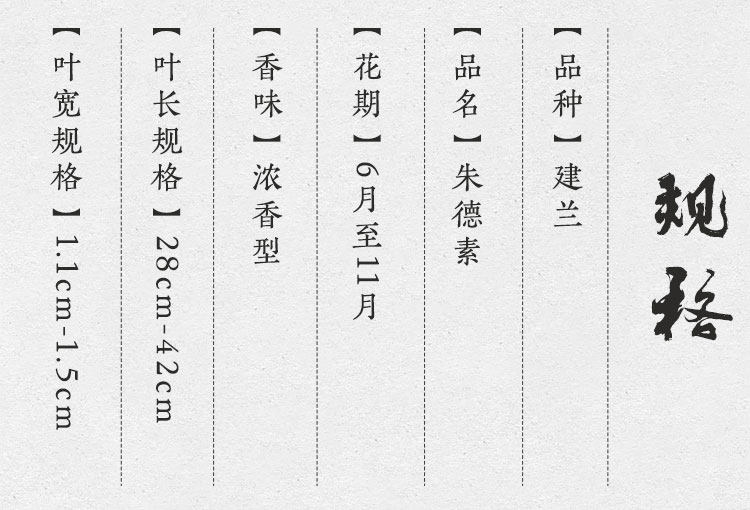 规格
【品种】建兰
【品名】朱德素
【花期】6月至11月
【香味】浓香型
【叶长规格】28cm-42cm
【叶宽规格】1.1cm-1.5cm